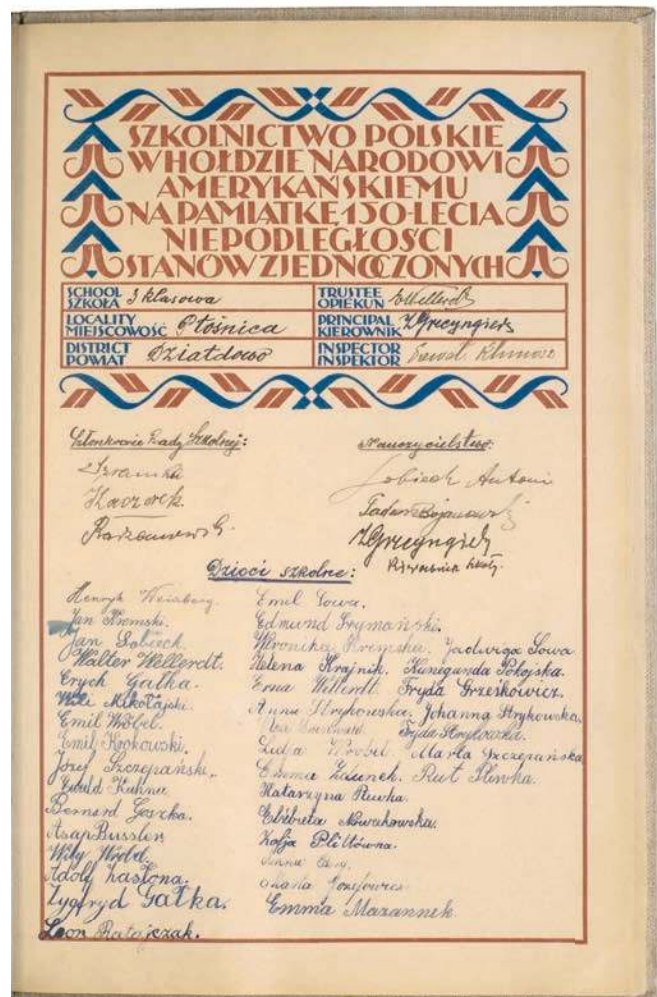 SZKOLNICTWO POLSKIE
W HOŁDZIE NARODOWI
AMERYKAŃSKIEMU
NA PAMIĄTKĘ 150-LECIA
NIEPODLEGŁOŚCI
STANÓW ZJEDNOCZONYCH
SCHOOL
SZKOŁA 3 klasowa
TRUSTEE
OPIEKUN EWellerdt
LOCALITY
MIEJSCOWOŚĆ Płośnica
PRINCIPAL
KIEROWNIK
DISTRICT
POWIAT Działdowo
INSPECTOR
INSPEKTOR
Członkowie Rady Szkolnej:
Szramka
Kaczorek.
Nauczycielstwo:
Sobiech Antoni
Tadeusz Bojanowski
Kierownik szkoły.
Dzieci szkolne:
Henryk Weinberg.
Jan Kremski.
Jan Sobiech.
Walter Wellerdt.
Erych Gałka.
Mikołajski.
Emil Wróbel.
Emil Krokowski.
Józef Szczepański.
Ewald Kuhner
Bernard Goszka.
Asap Bussler
Wily Wróbel.
Adolf Zasłona.
Zygfryd Gałka.
Leon Ratajczak.
Emil Sowa.
Edmund Szymański.
Weronika Kremska. Jadwiga Sowa
Helena Krajnik. Kunegunda Pokojska.
Erna Wellerdt. Fryda Grześkowicz.
Anna Strykowska. Johanna Strykowska.
Fryda Strykowska.
Lidja Wróbel. Marta Szczepańska
Emma Zdunek. Rut Śliwka.
Katarzyna
Elżbieta Nowakowska.
Zofja Plittówna.
Józefowicz
Emma Mazannek